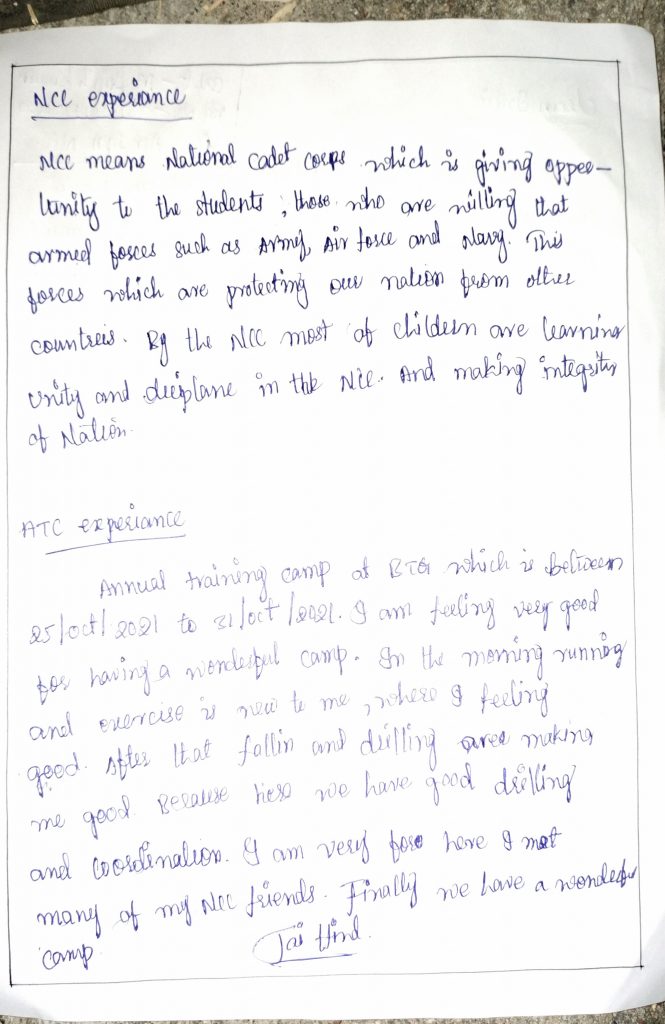 NCC experiance
NCC means National cadet corps which is giving opper-
tunity to the students, those who are willing that
armed forces such as Army, Air force and Navy. This
forces which are protecting our nation from other
countreis. By the NCC most of children are learning
Unity and deciplane in the NCC. And making integrity
of Nation.
ATC experiance
Annual training camp at BTG which is between
25/oct/2021 to 31/oct/2021. I am feeling very good
for having a wonderful camp. In the morning running
and exercise is new to me, where I feeling
good. After that fallin and drilling are making
me good. Because here we have good drilling
and coordination. I am very here I met
many of my NCC friends. Finally we have a wonderful
camp.
Jai Hind.